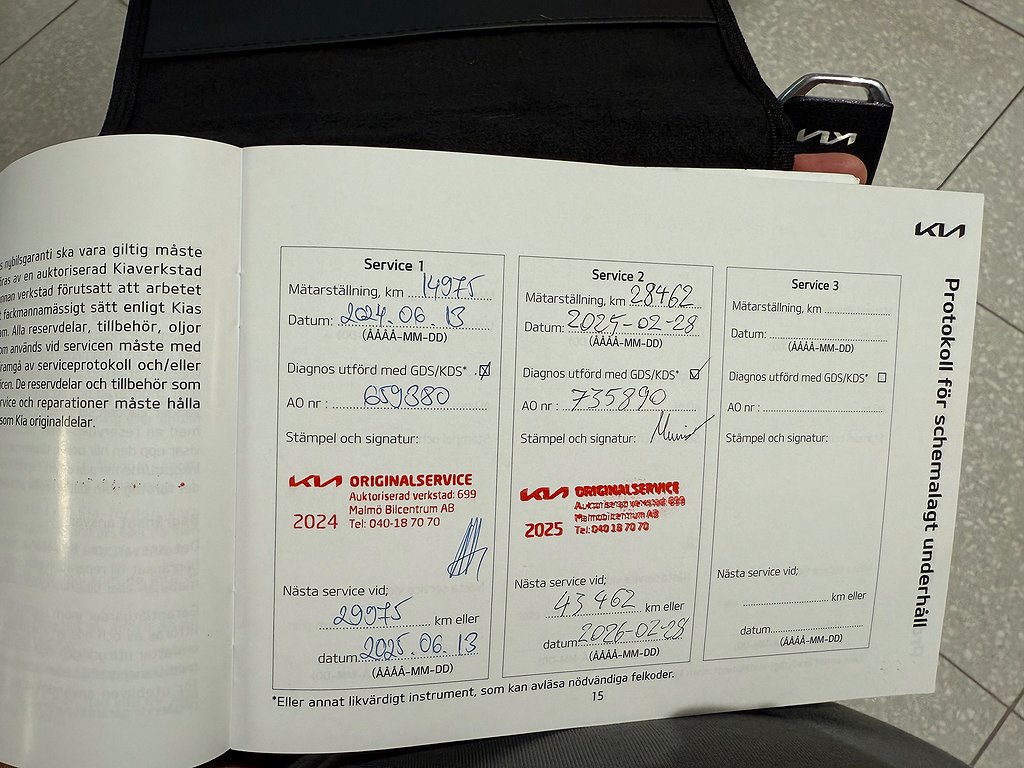 nybilsgaranti ska vara giltig måste
av en auktoriserad Kiaverkstad
annan verkstad förutsatt att arbetet
fackmannamässigt sätt enligt Kias
Alla reservdelar, tillbehör, oljor
som används vid servicen måste med
framgå av serviceprotokoll och/eller
De reservdelar och tillbehör som
service och reparationer måste hålla
som Kia originaldelar.
KIA
KIA
Protokoll för schemalagt underhåll
Service 1
Mätarställning, km 14975
Datum: 2024.06.13
(ÅÅÅÅ-MM-DD)
Diagnos utförd med GDS/KDS*
AO nr : 659380
Stämpel och signatur:
KIA ORIGINALSERVICE
Auktoriserad verkstad: 699
Malmö Bilcentrum AB
2024 Tel: 040-18 70 70
Nästa service vid;
29975 km eller
datum 2025.06.13
(ÅÅÅÅ-MM-DD)
Service 2
Mätarställning, km 28462
Datum: 2025-02-28
(ÅÅÅÅ-MM-DD)
Diagnos utförd med GDS/KDS*
AO nr : 735890
Stämpel och signatur:
KIA ORIGINALSERVICE
Auktoriserad verkstad: 699
Malmö Bilcentrum AB
2025 Tel: 040 18 70 70
Nästa service vid;
43462 km eller
datum 2026-02-28
(ÅÅÅÅ-MM-DD)
Service 3
Mätarställning, km
Datum:
(ÅÅÅÅ-MM-DD)
Diagnos utförd med GDS/KDS*
AO nr :
Stämpel och signatur:
Nästa service vid;
km eller
datum
(ÅÅÅÅ-MM-DD)
*Eller annat likvärdigt instrument, som kan avläsa nödvändiga felkoder.
15